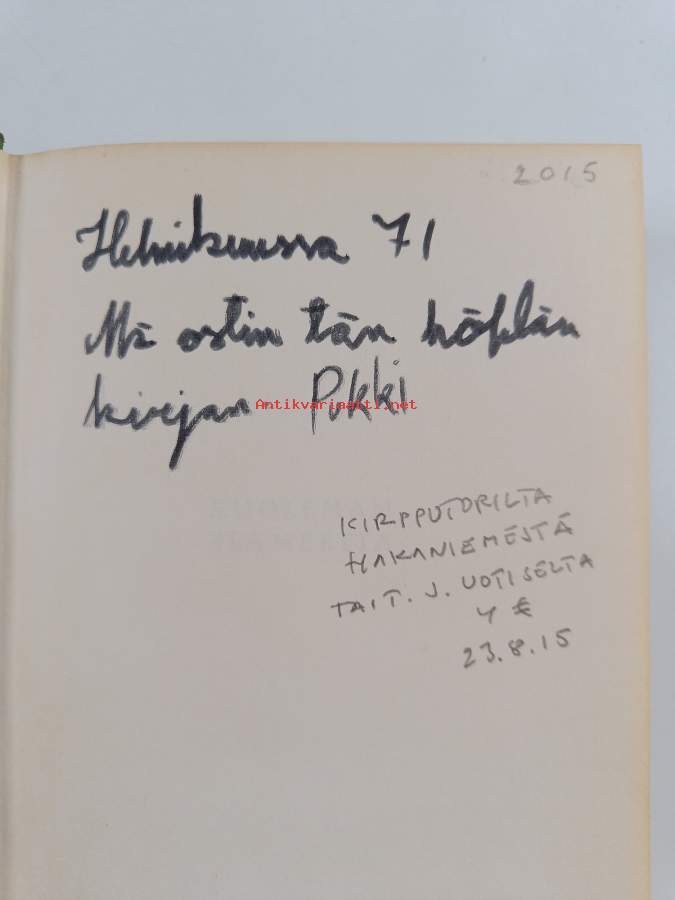 2015
Helmikuussa 71
Mä ostin tän höplän
kirjan Pukki
Antikvariaatti.net
KIRPPUTORILTA
HAKANIEMESTÄ
TAIT. J. UOTISELTA
4 €
23.8.15